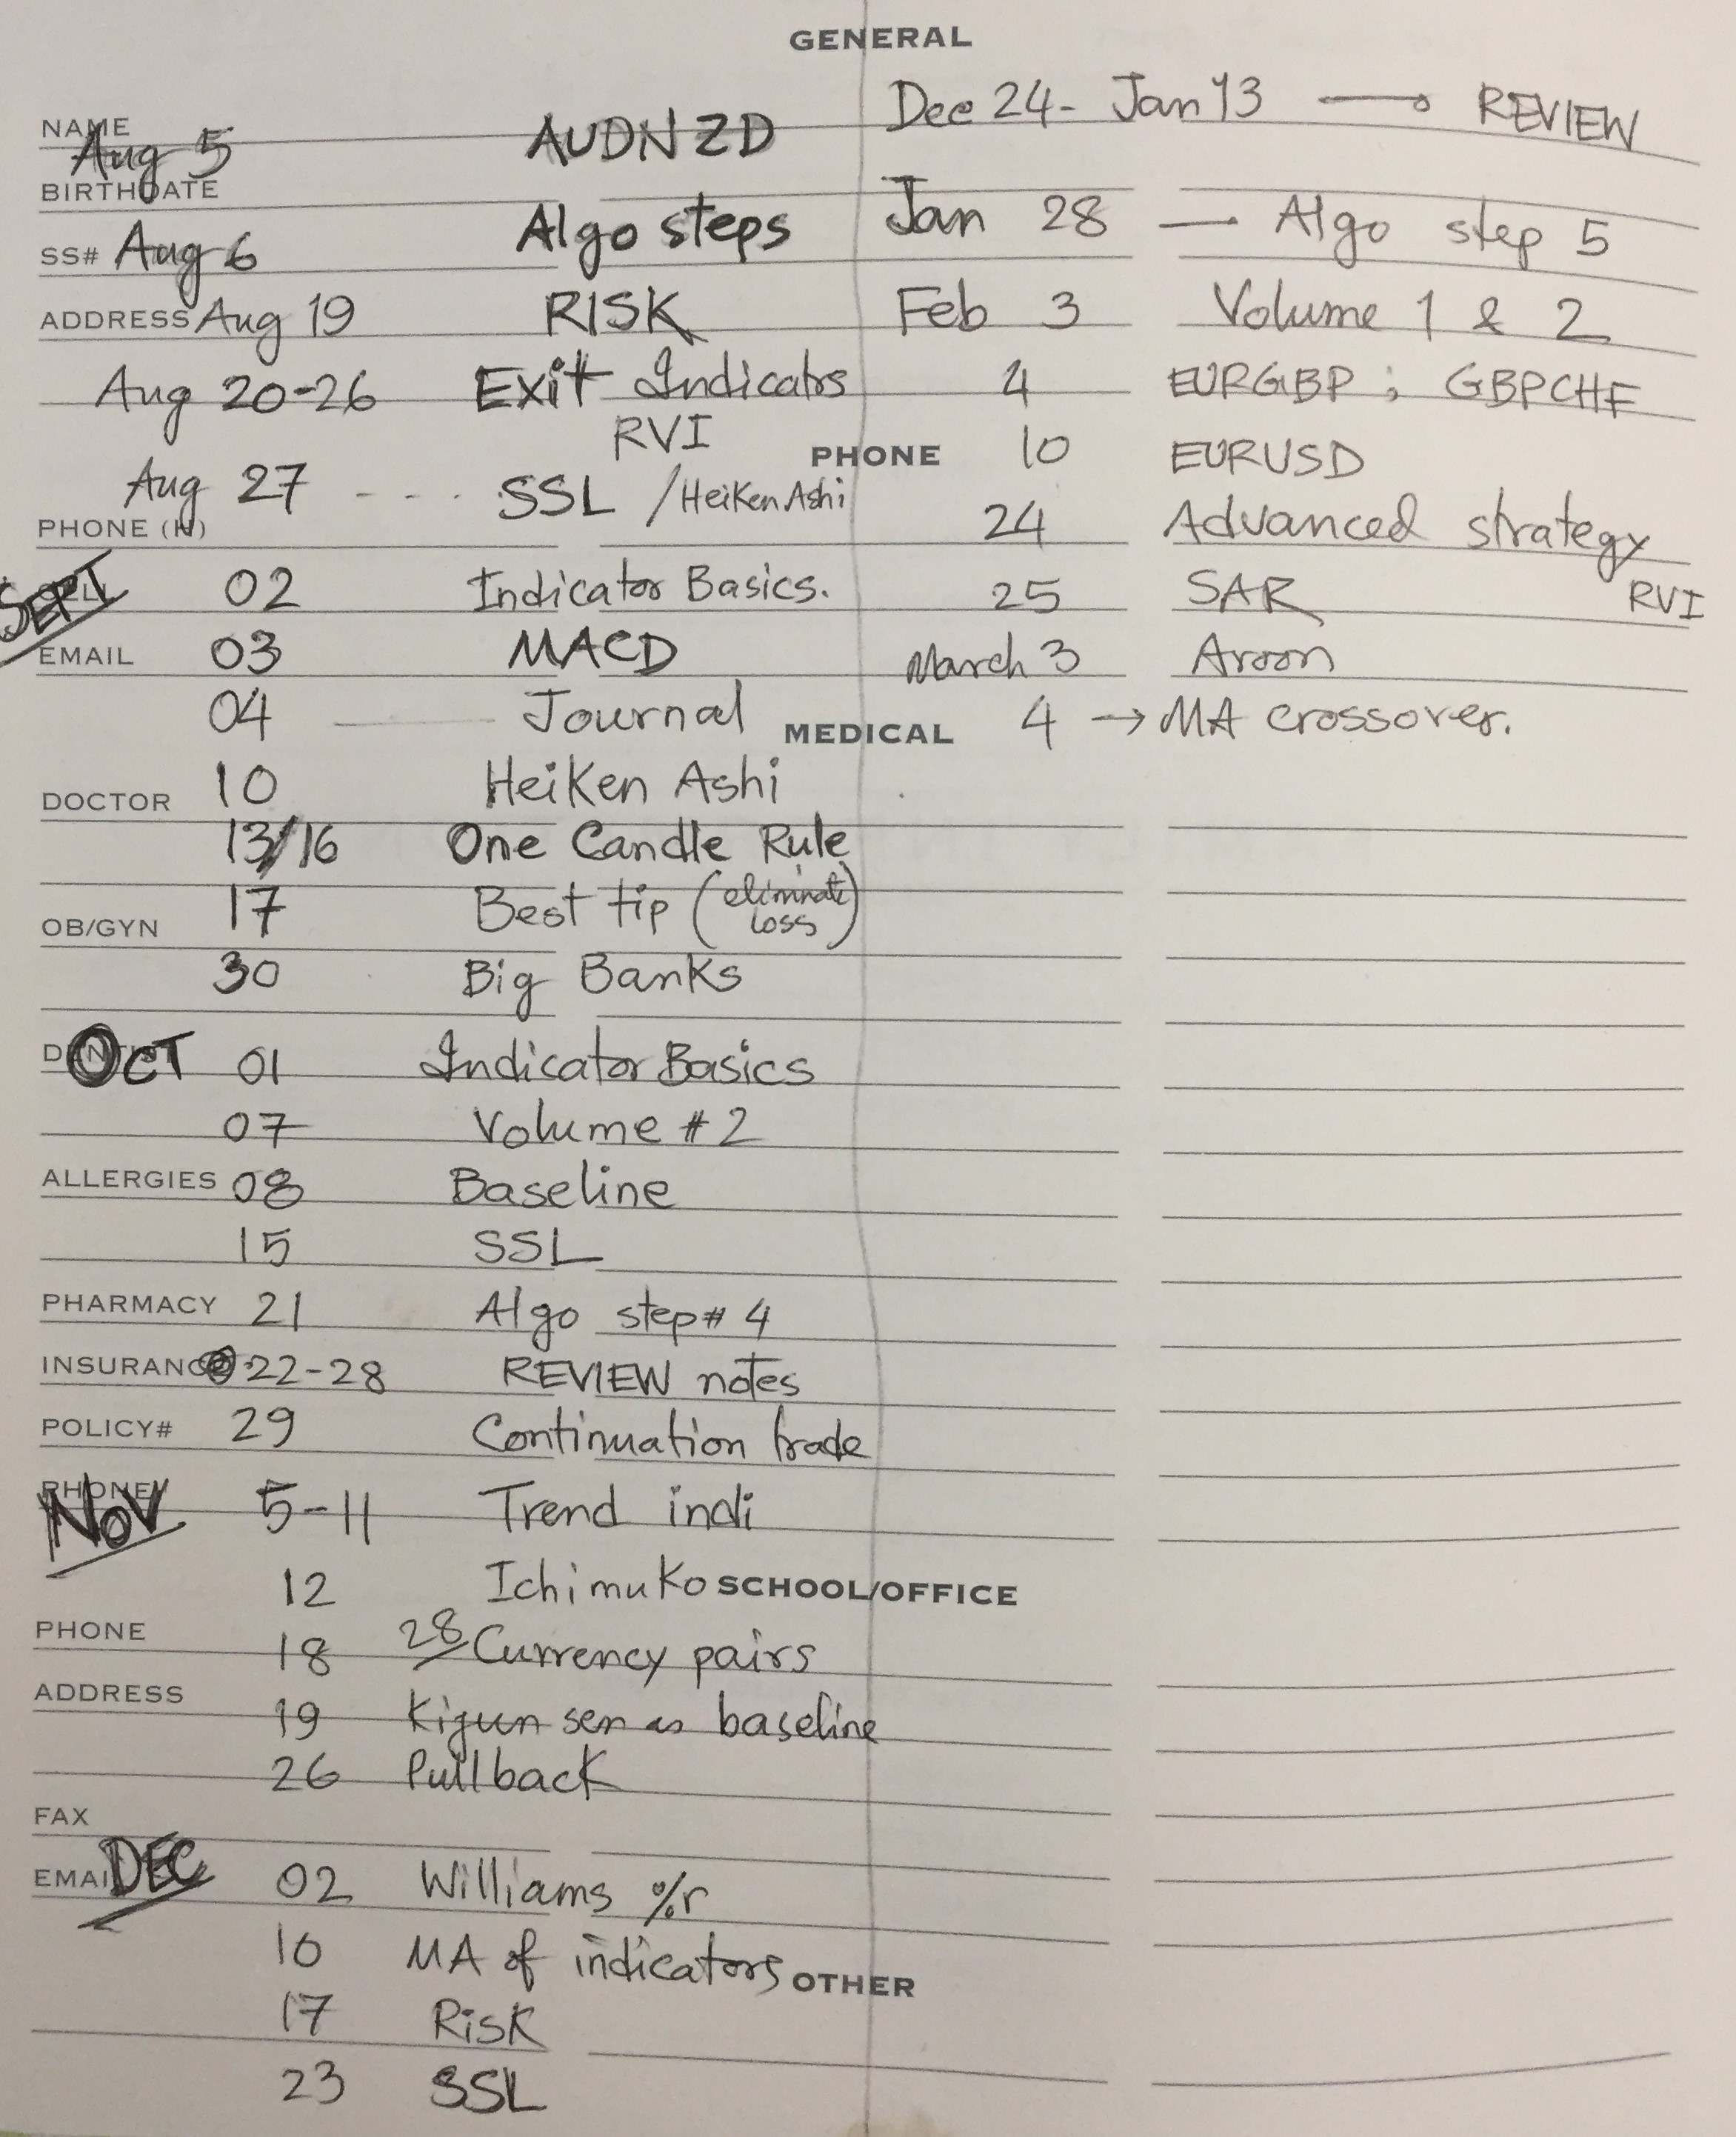 GENERAL
NAME
Aug 5 AUDNZD
BIRTHDATE
SS# Aug 6 Algo steps
ADDRESS Aug 19 RISK
Aug 20-26 Exit Indicatrs
RVI
Aug 27 - - - . SSL / Heiken Ashi
PHONE (H)
SEPT 02 Indicator Basics.
EMAIL 03 MACD
04 — Journal
DOCTOR 10 Heiken Ashi
13/16 One Candle Rule
17 Best tip (eliminate loss)
OB/GYN
30 Big Banks
OCT 01 Indicator Basics
07 Volume #2
ALLERGIES 08 Baseline
15 SSL
PHARMACY 21 Algo step# 4
INSURANCE 22-28 REVIEW notes
POLICY# 29 Continuation trade
PHONE
NOV 5-11 Trend indi
12 Ichimuko
SCHOOL/OFFICE
PHONE 18 28 Currency pairs
ADDRESS
19 Kijun sen as baseline
26 Pullback
FAX
EMAIL DEC 02 Williams %r
10 MA of indicators
OTHER
17 Risk
23 SSL
Dec 24 - Jan 13 → REVIEW
Jan 28 — Algo step 5
Feb 3 Volume 1 & 2
4 EURGBP ; GBPCHF
PHONE
10 EURUSD
24 Advanced strategy
25 SAR RVI
March 3 Aroon
MEDICAL
4 → MA crossover.